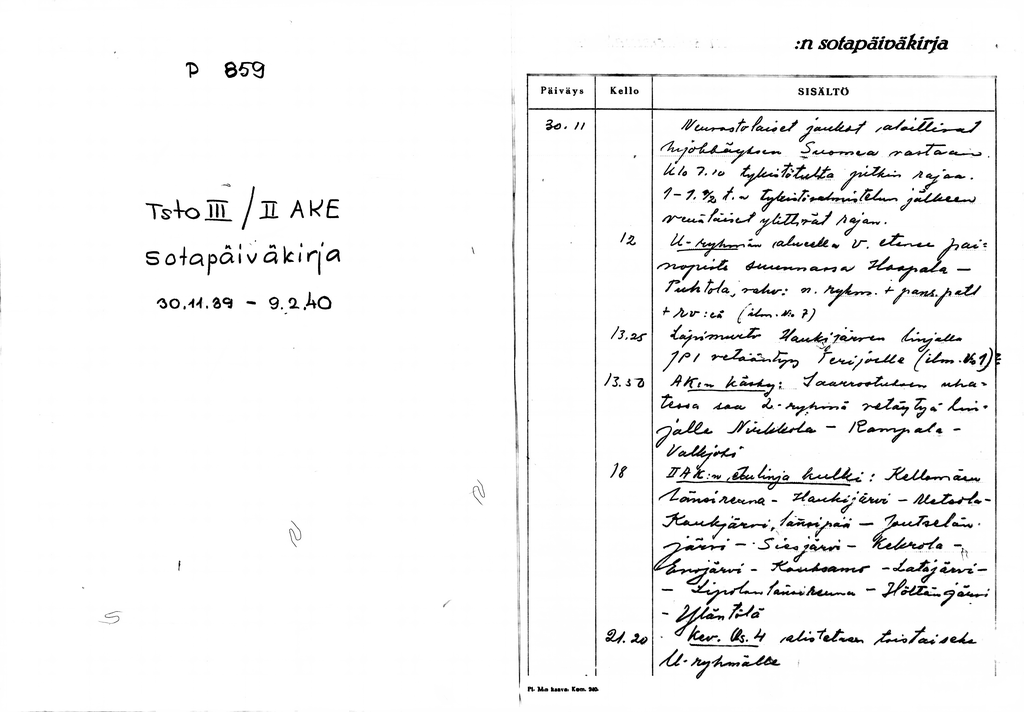 P 859
Tsto III / II AKE
Sotapäiväkirja
30.11.39 - 9.2.40
:n sotapäiväkirja
Päiväys Kello SISÄLTÖ
30.11 Neuvostolaiset joukot aloittivat
hyökkäyksen Suomea vastaan.
Klo 7.10 tykistötulta pitkin rajaa.
jälkeen
venäläiset ylittivät rajan.
12 U-ryhmän alueella v. etenee pai=
nopiste suunnassa Haapala —
Puhtola, vahv: n. rykm. + pans.patl
+ kv:eä (ilm. No 7)
13.25 Läpimurto Haukijärven linjalla
JP1 vetääntyy Terijoelle (ilm. No 1)
13.50 AK:n käsky: Saarrostuksen uha=
tessa saa L-ryhmä vetäytyä lin=
jalle Nirkkola — Rampala -
Valkjoki
18 IIAK:n etulinja kulki: Kellomäen
länsireuna - Haukijärvi — Metsola-
Kaukjärvi, länsipää — Joutselän-
järvi — Siesjärvi — Kekrola -
- Kauksamo - Latajärvi-
- Lipolan länsireuna —
- Yläntölä
21.20 Kev. Os. 4 alistetaan toistaiseksi
U-ryhmälle
Pl. M:n kaava. Kom. 340.